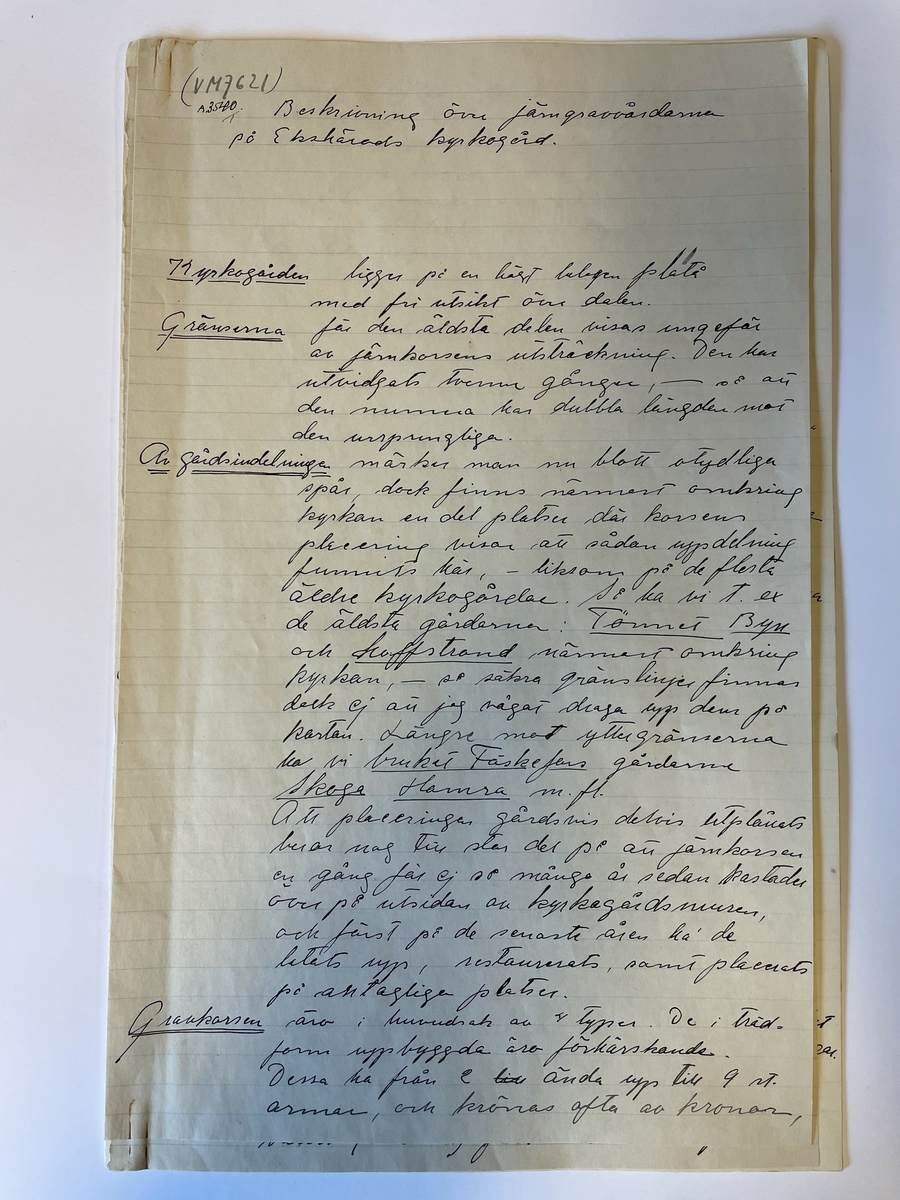 (VM7621)
A3540.
Beskrivning över järngravvårdarna
på Ekshärads kyrkogård.
Kyrkogården ligger på en högt belägen platå
med fri utsikt över dalen.
Gränserna för den äldsta delen visas ungefär
av järnkorsens utsträckning. Den har
utvidgats tvenne gånger, — så att
den numera har dubbla längden mot
den ursprungliga.
Av gårdsindelningen märker man nu blott otydliga
spår, dock finns närmast omkring
kyrkan en del platser där korsens
placering visar att sådan uppdelning
funnits här, – liksom på de flesta
äldre kyrkogårdar. Så ha vi t. ex
de äldsta gårdarna: Tönnet Byn
och Loffstrand närmast omkring
kyrkan, — så säkra gränslinjer finnas
dock ej att jag vågat draga upp dem på
kartan. Längre mot yttergränserna
ha vi bruket Föskefors gårdarna
Skoga Hamra m. fl.
Att placeringen gårdsvis delvis utplånats
beror nog till stor del på att järnkorsen
en gång för ej så många år sedan kastades
över på utsidan av kyrkogårdsmuren,
och först på de senaste åren ha de
letats upp, restaurerats, samt placerats
på antagliga platser.
Gravkorsen äro i huvudsak av typer. De i träd-
form uppbyggda äro förhärskande.
Dessa ha från 2 ända upp till 9 st.
armar, och krönas ofta av kronor,